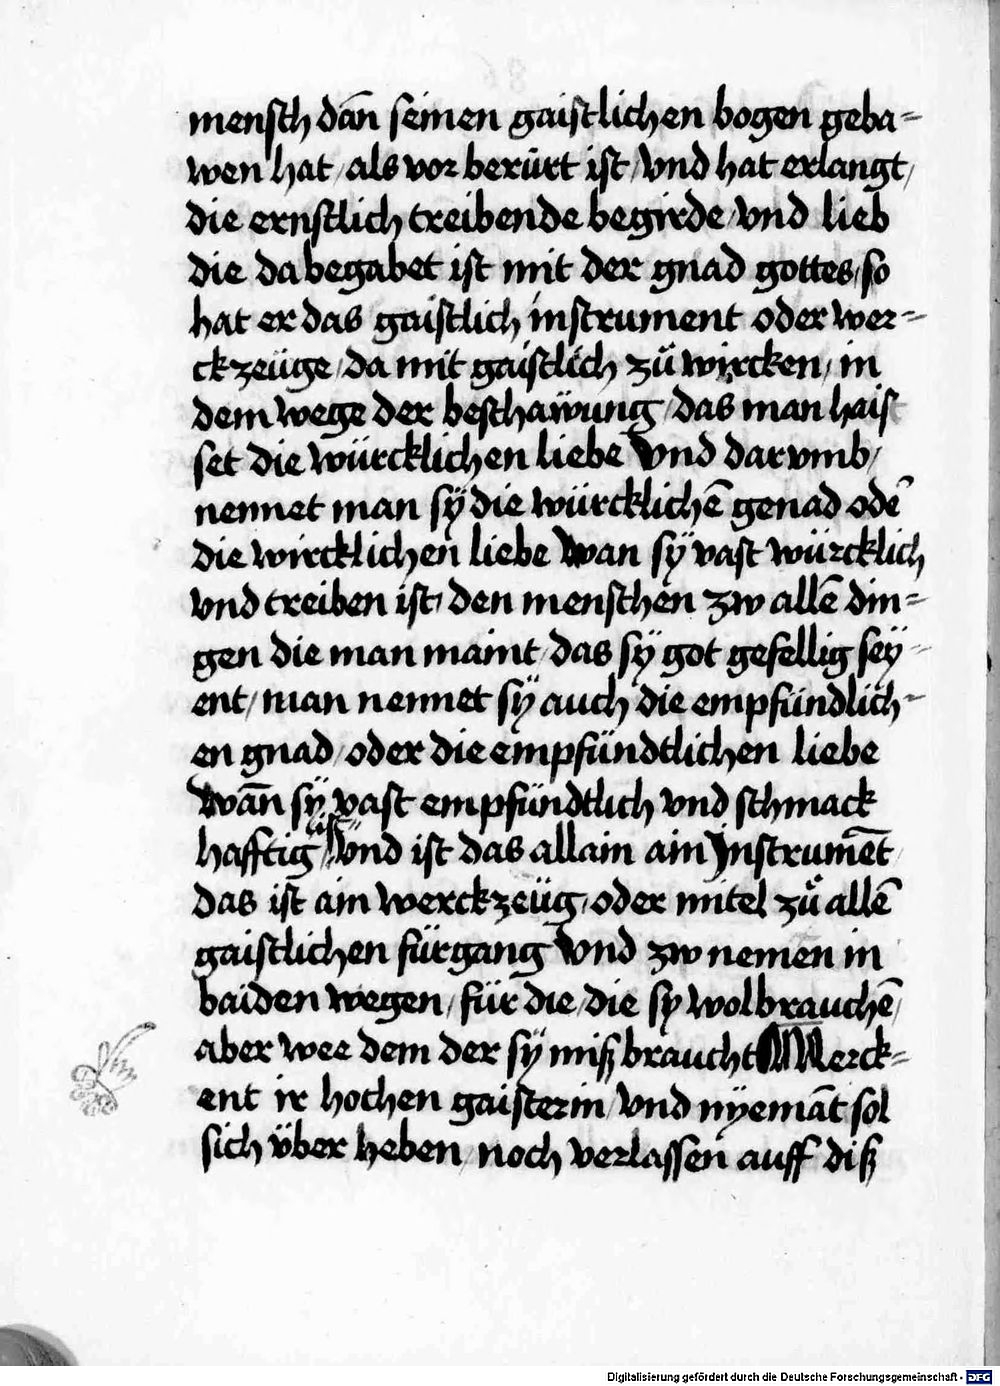 mensch dan̄ seinen gaistlichen bogen geba=
wen hat / als vor berürt ist / vnd hat erlangt /
die ernstlich treibende begirde / vnd lieb
die da begabet ist mit der gnad gottes / so
hat er das gaistlich instrument oder wer=
ckzeüge / da mit gaistlich zů wircken / in
dem wege der beschaẅung / das man hais
set die würcklichen liebe Vnd dar vmb /
nennet man sÿ die würcklichē genad odē
die wircklichen liebe Wan sÿ vast würcklich
vnd treiben ist / den menschen zw allē din=
gen die man maint / das sÿ got gefellig seÿ=
ent / man nennet sÿ auch die empfündlich=
en gnad / oder die empfündtlichen liebe
Wan̄ sÿ vast empfündtlich vnd schmack
hafftig ist Vnd ist das allain ain Instrumēt
das ist ain werckzeüg / oder mitel zů allē
gaistlichen fürgang Vnd zw nemen in
baiden wegen / für die / die sy wol brauchē /
aber wee dem der sÿ miß braucht Merck=
ent ir hochen gaister in / vnd nyemāt sol
sich über heben / noch verlassen auff diß
Digitalisierung gefördert durch die Deutsche Forschungsgemeinschaft - DFG